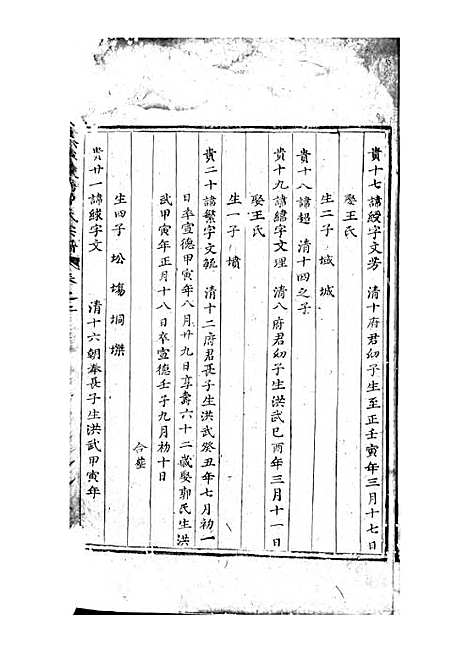 貴十七諱綬字文芳　清十府君幼子生至正壬寅年三月十七日
娶王氏
生二子　城　城
貴十八諱超　清十四之子
貴十九諱繥字文理　清八府君幼子生洪武己酉年三月十一日
娶王氏
生一子　墳
貴二十諱繁字文　清十二府君長子生洪武癸丑年七月初一
日卒宣德甲寅年八月廿九日享壽六十二歲娶郭氏生洪
武甲寅年正月十八日卒宣德壬子九月初十日
合塟
生四子　坋　塲　垌　墚
貴廿一諱緱字文　清十六朝奉長子生洪武甲寅年